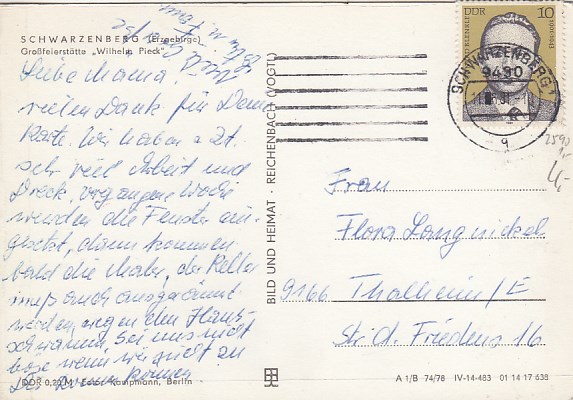 SCHWARZENBERG (Erzgebirge)
Großfeierstätte „Wilhelm Pieck"
Liebe Mama!
vielen Dank für Deine
Karte. Wir haben z. Zt.
sehr viel Arbeit und
Dreck, vergangene Woche
wurden die Fenster ein-
gesetzt, dann kommen
bald die Maler, der Keller
muß auch ausgeräumt
werden wegen dem Haus-
schwamm, sei uns nicht
böse wenn wir nicht an
kommen
DDR 0,20 M Foto: Kampmann, Berlin
BILD UND HEIMAT · REICHENBACH (VOGTL)
DDR 10
SCHWARZENBERG 1
9430
q
2590
4,-
Frau
Flora Langnickel
9166 Thalheim/E
Str. d. Friedens 16
A 1/B 74/78 IV-14-483 01 14 17 638